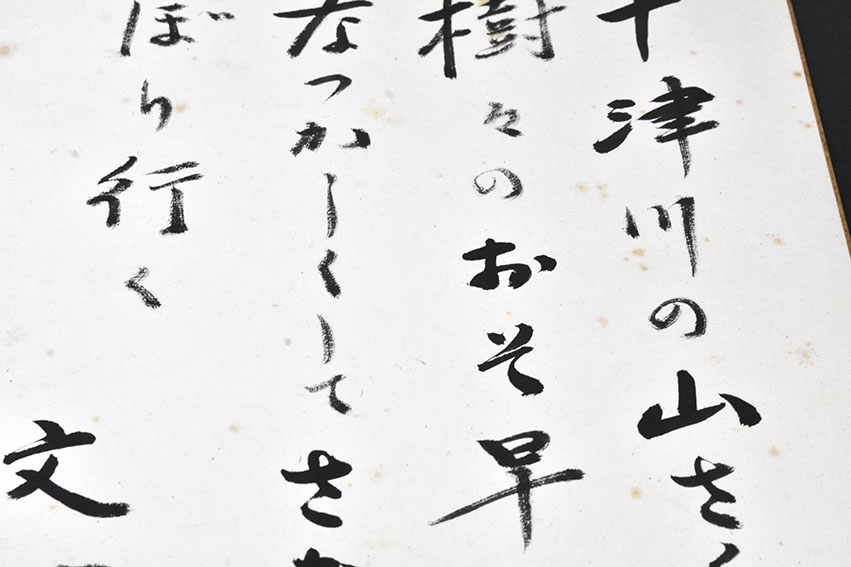 十津川の山さく
樹々のおそ早
なつかしくしてさ
ぼり行く
文